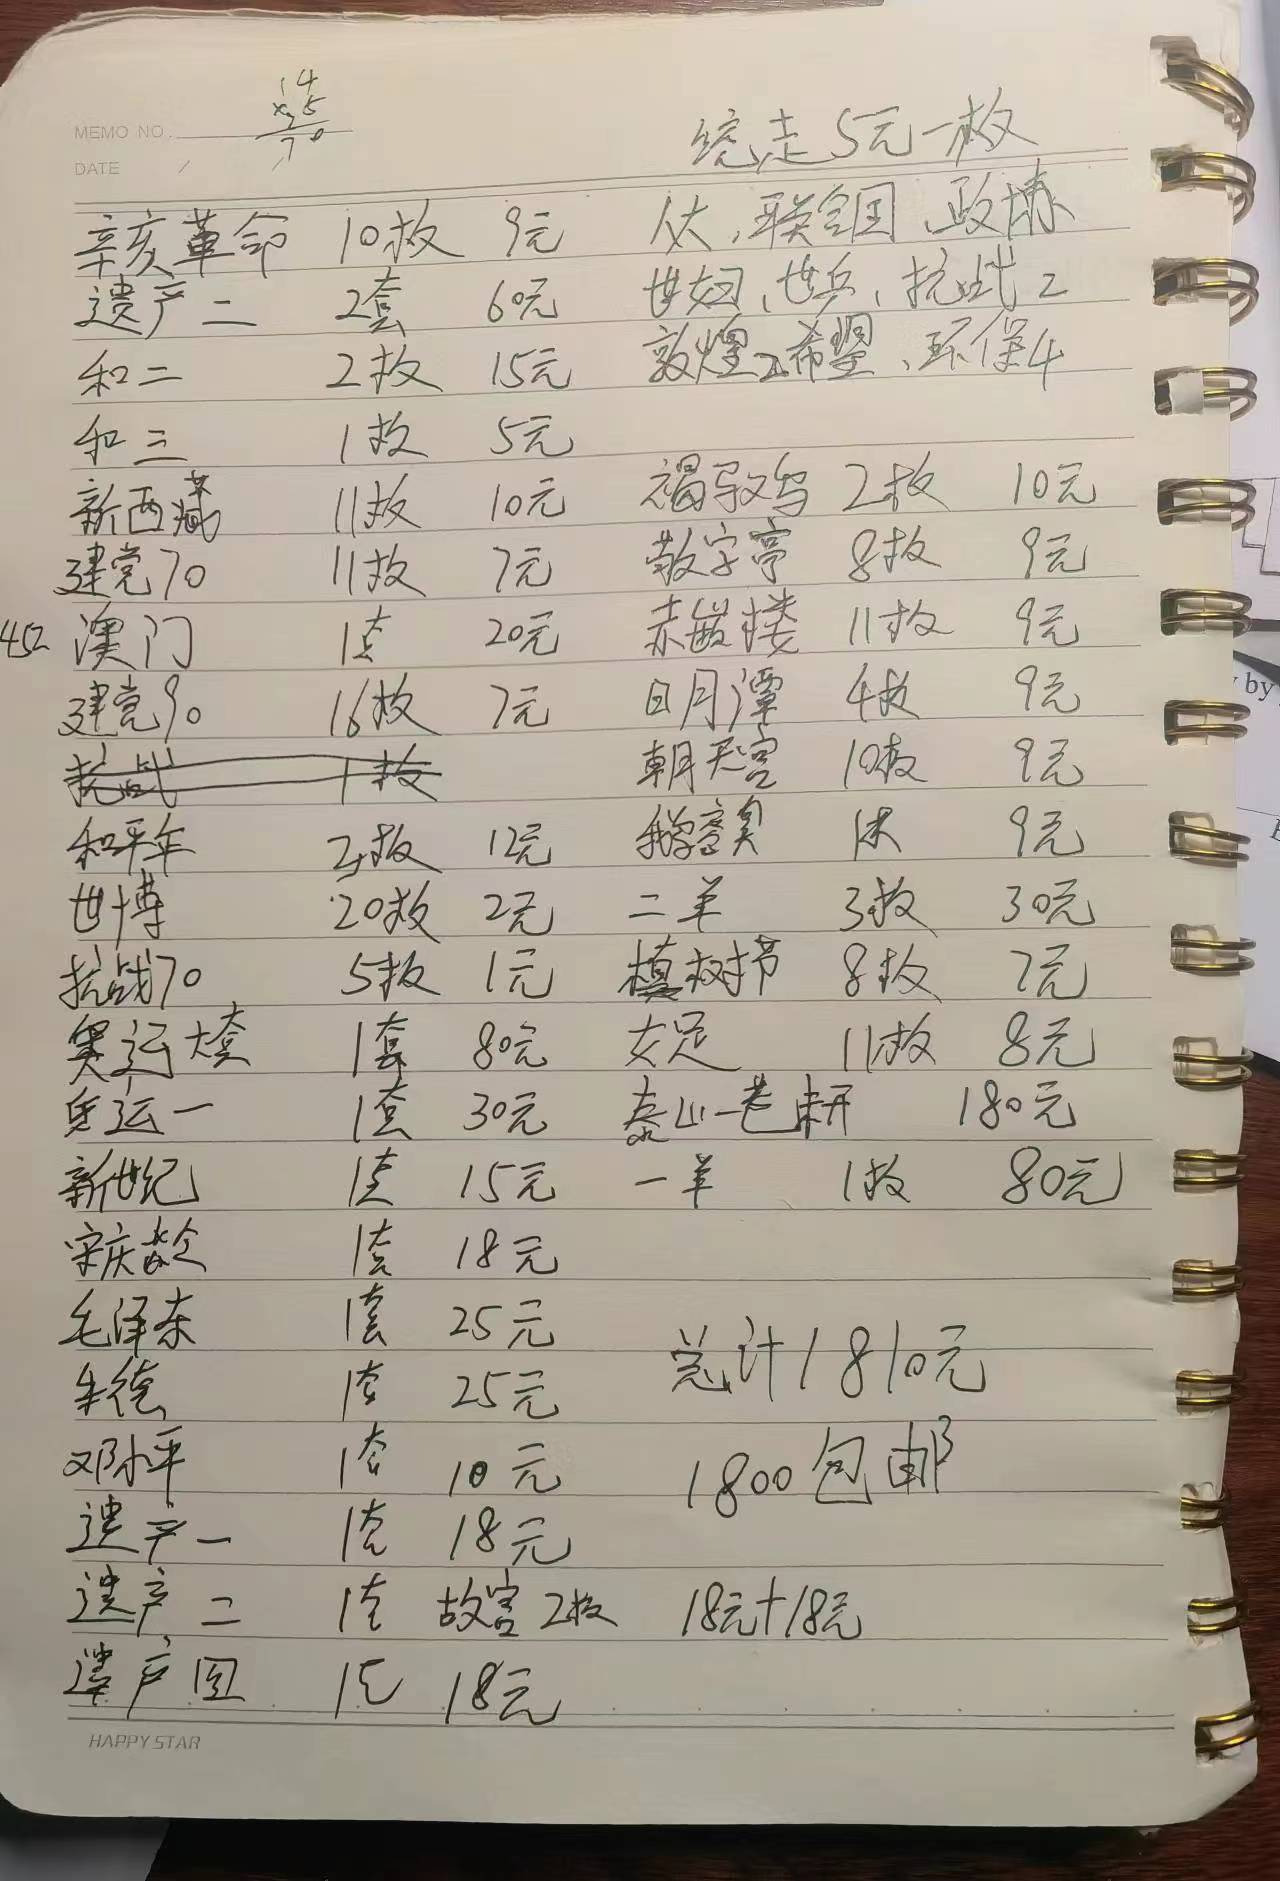 MEMO NO.
DATE /
14
×25
70
统走5元一枚
辛亥革命 10枚 9元
人大、联合国、政协
遗产二 2套 60元
世妇、世乒、抗战2
和二 2枚 15元
敦煌2希望、环保4
和三 1枚 5元
新西藏 11枚 10元
褐马鸡 2枚 10元
建党70 11枚 7元
敬字亭 8枚 9元
452 澳门 1套 20元
赤嵌楼 11枚 9元
建党90 16枚 7元
日月潭 4枚 9元
抗战 1枚
朝天宫 10枚 9元
和平年 2枚 12元
9元
世博 20枚 2元
二羊 3枚 30元
抗战70 5枚 1元
植树节 8枚 7元
奥运大套 1套 80元
大足 11枚 8元
奥运一 1套 30元
泰山一卷未开 180元
新世纪 1套 15元
一羊 1枚 80元
宋庆龄 1套 18元
毛泽东 1套 25元
总计1810元
朱德 1套 25元
邓小平 1套 10元
1800包邮
遗产一 1套 18元
遗产二 1套 故宫2枚 18元+18元
遗产四 1套 18元
HAPPY STAR